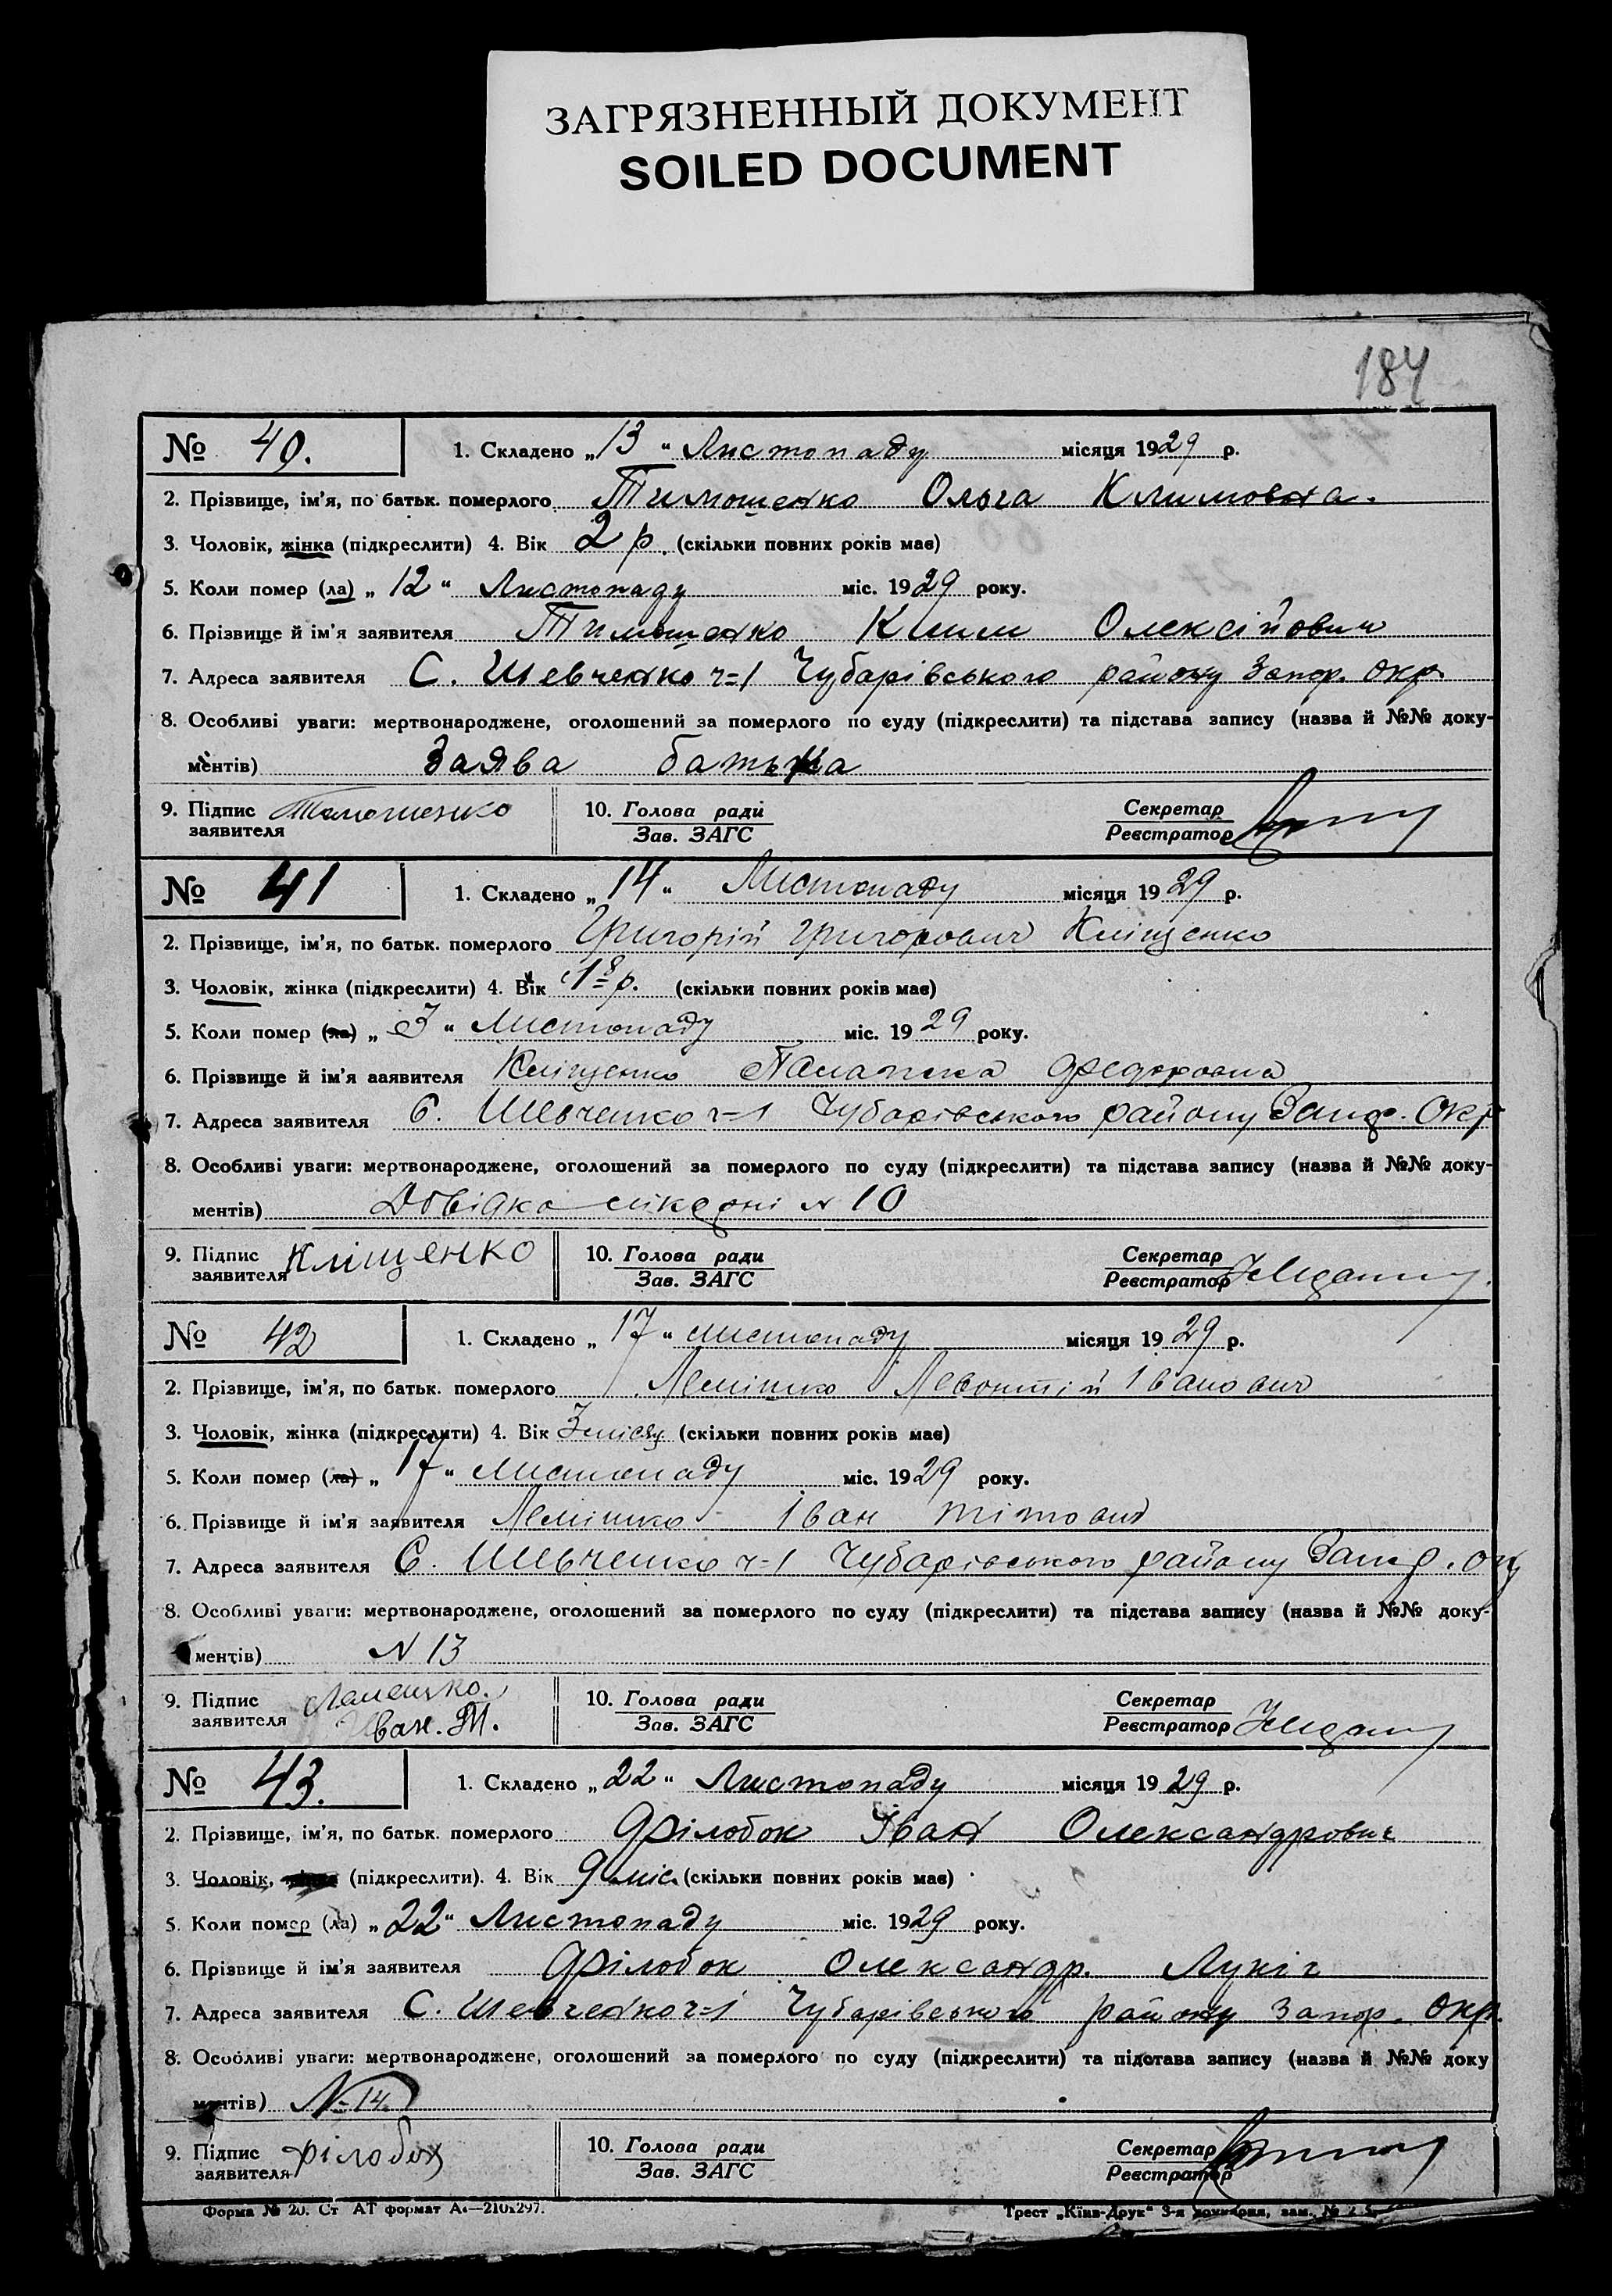 ЗАГРЯЗНЕННЫЙ ДОКУМЕНТ
SOILED DOCUMENT
184
№ 40. 1. Складено „13“ Листопаду місяця 1929 р.
2. Прізвище, ім'я, по батьк. померлого Тимошенко Ольга Климовна.
3. Чоловік, жінка (підкреслити) 4. Вік 2 р. (скільки повних років має)
5. Коли помер (ла) „12“ Листопаду міс. 1929 року.
6. Прізвище й ім'я заявителя Тимошенко Клим Олексійович
7. Адреса заявителя С. Шевченко ч=1 Чубарівського району Запор. Окр.
8. Особливі уваги: мертвонароджене, оголошений за померлого по суду (підкреслити) та підстава запису (назва й №№ доку-
ментів) Заява батька
9. Підпис заявителя Тимошенко 10. Голова ради Секретар
Зав. ЗАГС Реєстратор
№ 41 1. Складено „14“ Листопаду місяця 1929 р.
2. Прізвище, ім'я, по батьк. померлого Григорій Григорович Кліщенко
3. Чоловік, жінка (підкреслити) 4. Вік р. (скільки повних років має)
5. Коли помер (ла) „3“ Листопаду міс. 1929 року.
6. Прізвище й ім'я заявителя Кліщенко Палапка Федоровна
7. Адреса заявителя С. Шевченко ч=1 Чубарівського району Запор. Окр
8. Особливі уваги: мертвонароджене, оголошений за померлого по суду (підкреслити) та підстава запису (назва й №№ доку-
ментів) Довідка N 10
9. Підпис заявителя Кліщенко 10. Голова ради Секретар
Зав. ЗАГС Реєстратор
№ 42 1. Складено „17“ листопаду місяця 1929 р.
2. Прізвище, ім'я, по батьк. померлого Лемішко Левонтій Іванович
3. Чоловік, жінка (підкреслити) 4. Вік 3 місяц (скільки повних років має)
5. Коли помер (ла) „17“ листопаду міс. 1929 року.
6. Прізвище й ім'я заявителя Лемішко Іван Тітович
7. Адреса заявителя С. Шевченко ч=1 Чубарівського району Запор. Окр
8. Особливі уваги: мертвонароджене, оголошений за померлого по суду (підкреслити) та підстава запису (назва й №№ доку-
ментів) N 13
9. Підпис заявителя Иван. Т. 10. Голова ради Секретар
Зав. ЗАГС Реєстратор
№ 43. 1. Складено „22“ Листопаду місяця 1929 р.
2. Прізвище, ім'я, по батьк. померлого Філобок Іван Олександрович
3. Чоловік, (підкреслити). 4. Вік 9 міс. (скільки повних років має)
5. Коли помер (ла) „22“ Листопаду міс. 1929 року.
6. Прізвище й ім'я заявителя Філобок Олександр. Лукіч
7. Адреса заявителя С. Шевченко ч=1 Чубарівського району Запор. Окр.
8. Особливі уваги: мертвонароджене, оголошений за померлого по суду (підкреслити) та підстава запису (назва й №№ доку
ментів) N-14.
9. Підпис заявителя Філобок 10. Голова ради Секретар
Зав. ЗАГС Реєстратор
Форма № 20. Ст АТ формат А4—210x297. Трест „Київ-Друк“ 3-я друкарня, зам. №